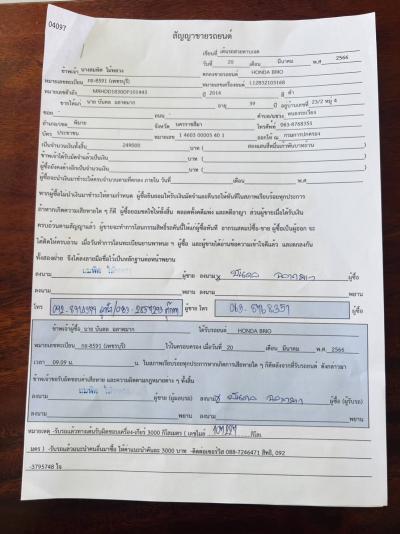 04097
สัญญาขายรถยนต์
เขียนที่ เต็นรถสวยทางบอล
วันที่ 20 เดือน มีนาคม พ.ศ 2566
ข้าพเจ้า นางสมพิศ ไม้หลวง ตกลงขายรถยนต์ HONDA BRIO
หมายเลขทะเบียน กย-8591 (เพชรบุรี) หมายเลขเครื่องยนต์ L12B32105168
หมายเลขตัวถัง MRHDD1830DP101443 ปี 2014 สี ดำ
ขายให้แก่ นาย บันดล อายุ 39 ปี อยู่บ้านเลขที่ 23/2 หมู่ 4
ซอย ถนน - ตำบล/แขวง หนองระเวียง
อำเภอ/เขต พิมาย จังหวัด นครราชสีมา โทรศัพท์ 063-8768351
บัตร ประชาชน หมายเลข 1 4603 00005 40 1 ออกให้ ณ กรมการปกครอง
เป็นจำนวนเงินทั้งสิ้น 249000 บาท ( สองแสนสี่หมื่นเก้าพันบาทถ้วน )
ข้าพเจ้าได้รับมัดจำแล้วเป็นเงิน บาท ( )
ผู้ซื้อยังคงค้างอีกเป็นจำนวนเงิน บาท ( )
ผู้ซื้อจะนำเงินมาชำระให้ครบจำนวนตามที่ตกลง ภายใน วันที่ เดือน พ.ศ
หากผู้ซื้อไม่นำเงินมาชำระให้ตามกำหนด ผู้ซื้อยินยอมให้ริบเงินมัดจำและคืนรถให้ทันทีในสภาพเรียบร้อยทุกประการ
ถ้าหากเกิดความเสียหายใด ๆ ก็ดี ผู้ซื้อยอมชดใช้ให้ทั้งสิ้น ตลอดทั้งคดีแพ่ง และคดีอาญา ส่วนผู้ขายเมื่อได้รับเงิน
ครบถ้วนตามสัญญาแล้ว ผู้ขายจะทำการโอนกรรมสิทธิ์รถคันนี้ให้แก่ผู้ซื้อทันที อากรแสตมป์ซื้อ-ขาย ผู้ซื้อเป็นผู้ออก จะ
ได้คิดให้ครบถ้วน เมื่อวันทำการโอนทะเบียนยานพาหนะ ฯ ผู้ซื้อ และผู้ขายได้อ่านข้อความเข้าใจดีแล้ว และตกลงกัน
ทั้งสองฝ่าย จึงได้ลงลายมือชื่อไว้เป็นหลักฐานต่อหน้าพยาน
ลงนาม ผู้ขาย ลงนาม x ผู้ซื้อ
ลงนาม พยาน ลงนาม พยาน
โทร ผู้ขาย โทร 063-8768351 ผู้ซื้อ
ข้าพเจ้าผู้ซื้อ นาย บันดล ได้รับรถยนต์ HONDA BRIO
หมายเลขทะเบียน กย-8591 (เพชรบุรี) ไว้ในครอบครอง เมื่อวันที่ 20 เดือน มีนาคม พ.ศ. 2566
เวลา 09.09 น. น. ในสภาพเรียบร้อยทุกประการหากเกิดการเสียหายใด ๆ ก็ดีหลังจากที่รับรถยนต์ ดังกล่าวมา
ข้าพเจ้าขอรับผิดชอบค่าเสียหาย และความผิดตามกฎหมายต่าง ๆ ทั้งสิ้น
ลงนาม ผู้ขาย (ผู้มอบรถ) ลงนาม x ผู้ซื้อ (ผู้รับรถ)
ลงนาม พยาน ลงนาม พยาน
หมายเหตุ -รับรถแล้วทางเต็นรับผิดชอบเครื่อง-เกียร์ 3000 กิโลเมตร ( เลขไมล์ กิโล
เมตร ) -รับรถแล้วแนะนำคนอื่นมาซื้อ ให้ค่าแนะนำคันละ 3000 บาท -ติดต่อเซอร์วิส 088-7246471 สิทธิ, 092
-3795748 ใจ